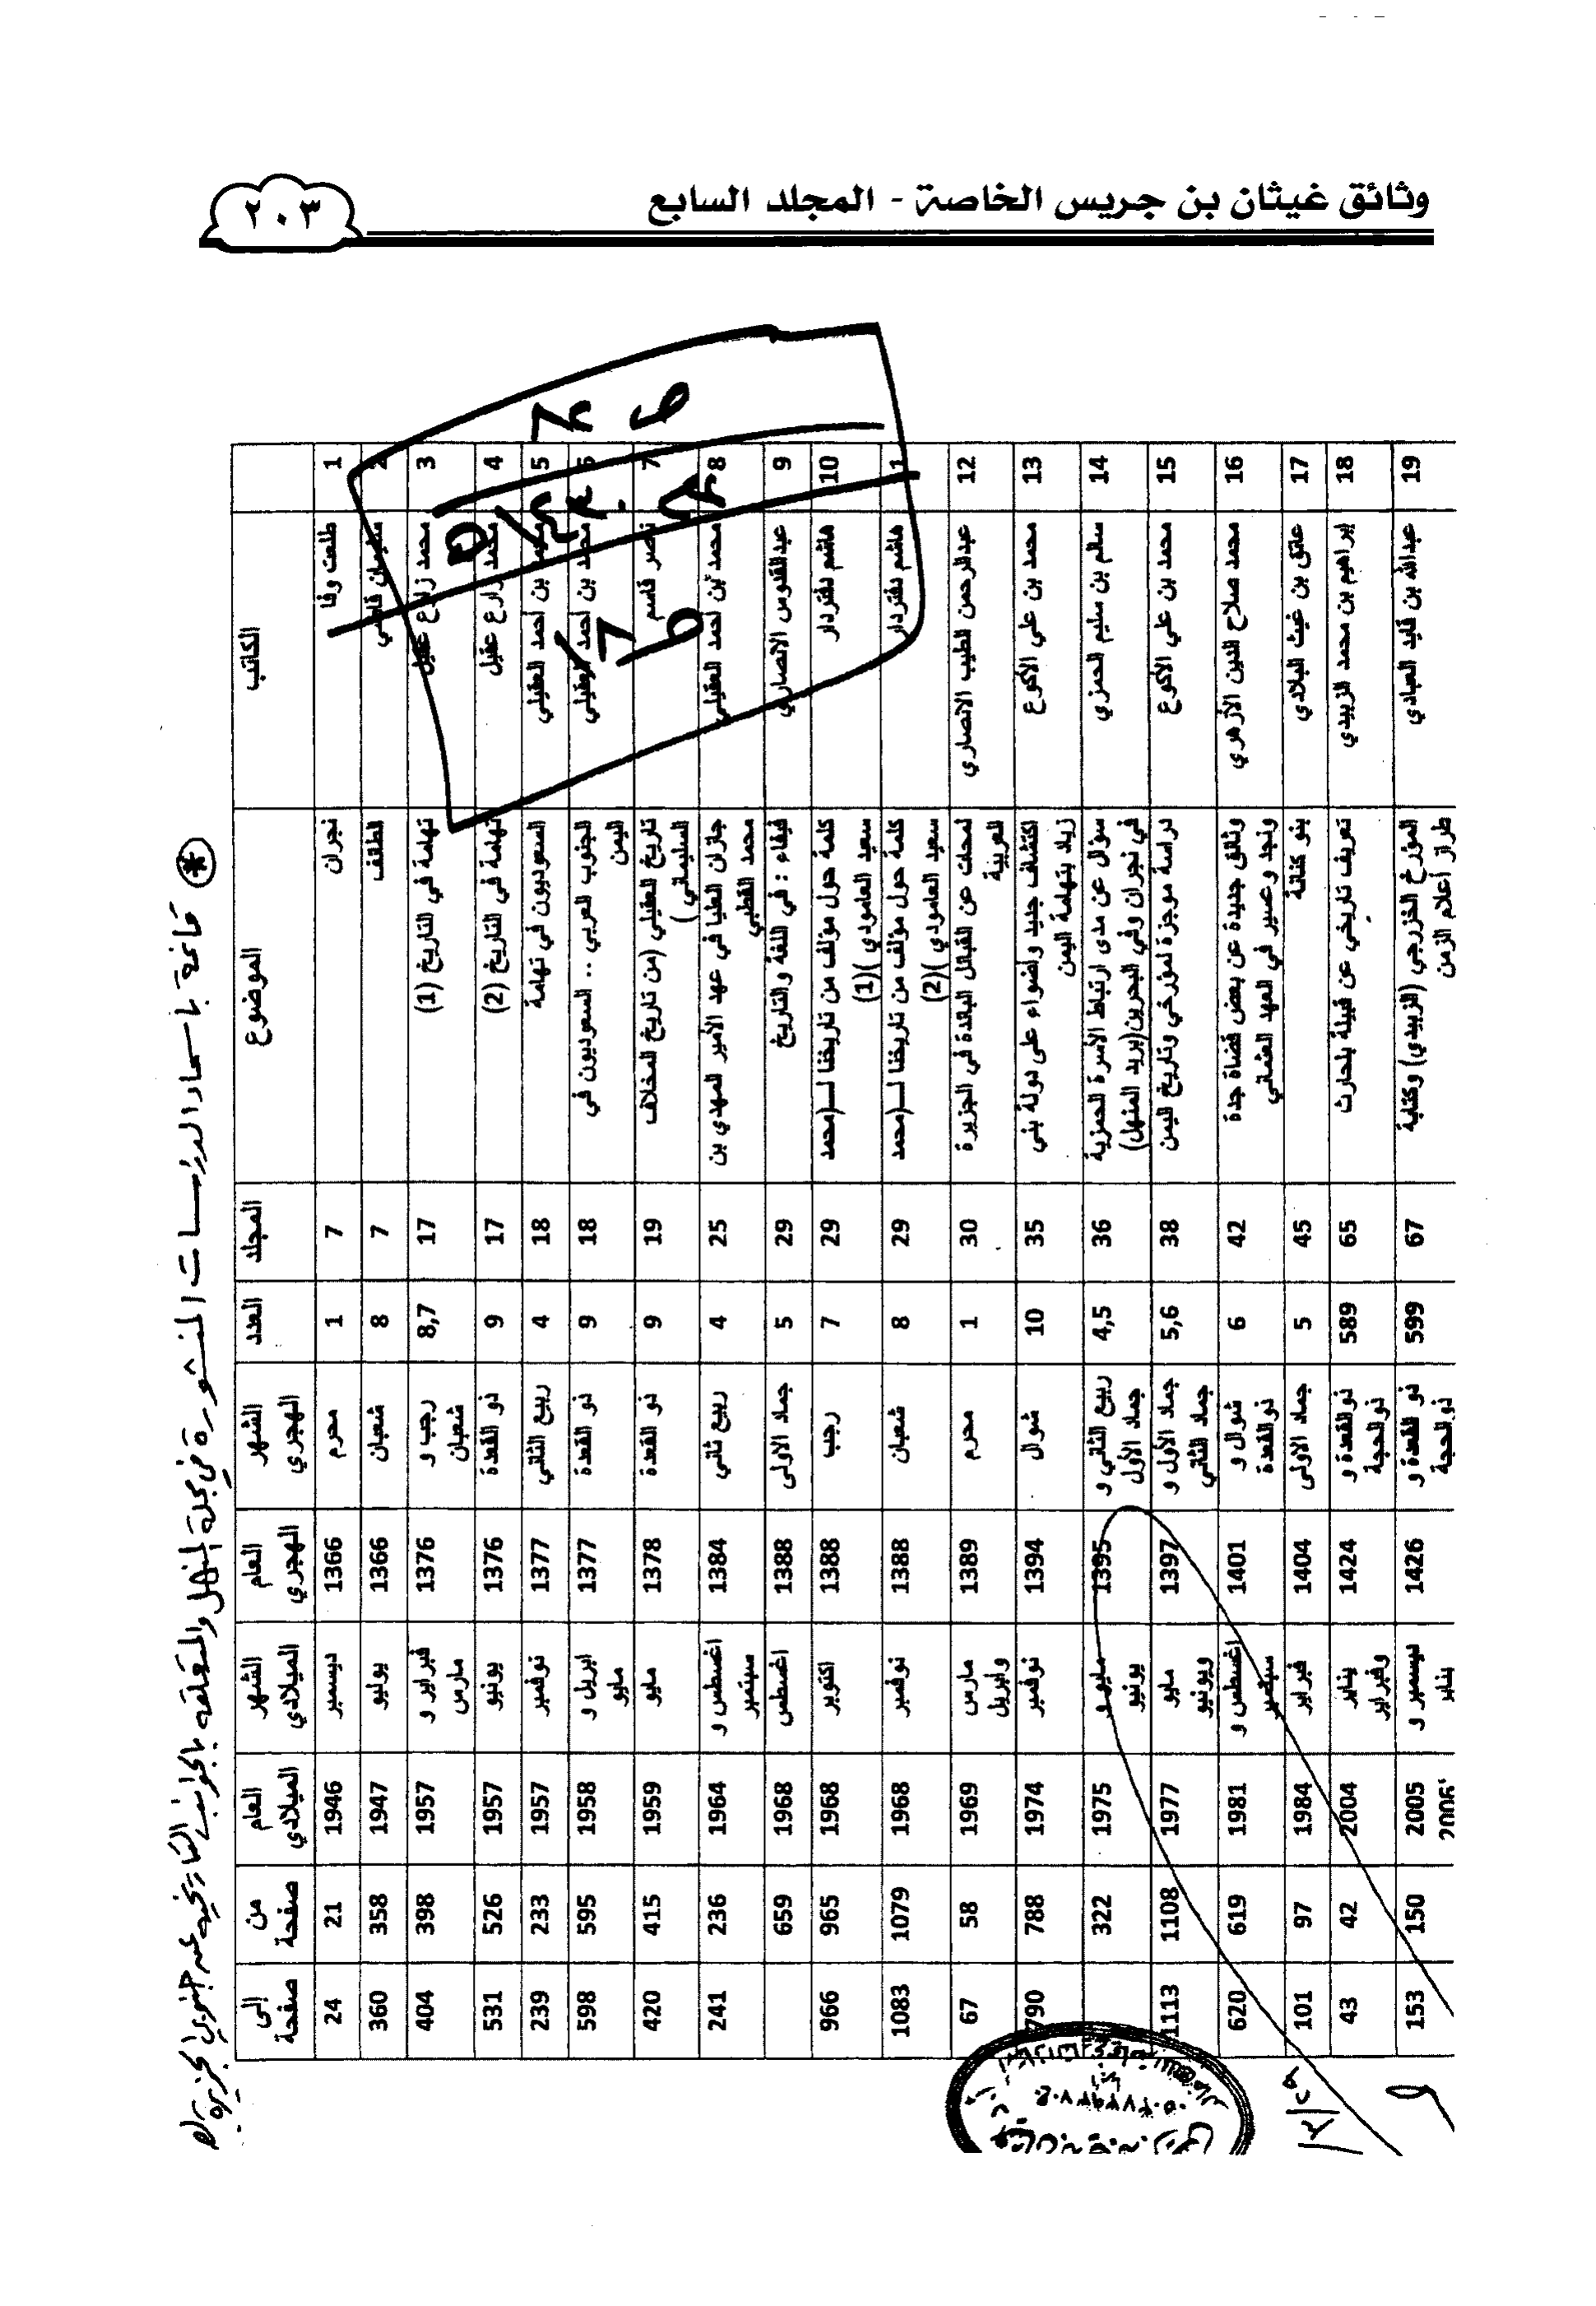 وثائق غيثان بن جريس الخاصة - المجلد السابع
٢٠٣
قائمة بأسماء الدراسات المنشورة في مجلة المنهل والمتعلقة بالجوانب التاريخية عند جنوبي الجزيرة
الكاتب الموضوع المجلد العدد الشهر الهجري العام الهجري الشهر الميلادي العام الميلادي من صفحة إلى صفحة
1 طلعت وفا نجران 7 1 محرم 1366 ديسمبر 1946 21 24
2 سليمان قاضي الطائف 7 8 شعبان 1366 يوليو 1947 358 360
3 محمد زارع عقيل تهامة في التاريخ (1) 17 8,7 رجب و شعبان 1376 فبراير و مارس 1957 398 404
4 محمد زارع عقيل تهامة في التاريخ (2) 17 9 ذو القعدة 1376 يونيو 1957 526 531
5 محمد بن احمد العقيلي السعوديون في تهامة 18 4 ربيع الثاني 1377 نوفمبر 1957 233 239
6 محمد بن احمد العقيلي الجنوب العربي .. السعوديون في اليمن 18 9 ذو القعدة 1377 ابريل و مايو 1958 595 598
7 ناصر قاسم تاريخ العقيلي (من تاريخ المخلاف السليماني ) 19 9 ذو القعدة 1378 مايو 1959 415 420
8 محمد بن احمد العقيلي جازان العليا في عهد الأمير المهدي بن محمد القطبي 25 4 ربيع ثاني 1384 اغسطس و سبتمبر 1964 236 241
9 عبدالقدوس الانصاري فيفاء : في اللغة والتاريخ 29 5 جماد الاولى 1388 اغسطس 1968 659
10 هاشم دفتردار كلمة حول مؤلف من تاريخنا لـ(محمد سعيد العامودي )(1) 29 7 رجب 1388 اكتوبر 1968 965 966
11 هاشم دفتردار كلمة حول مؤلف من تاريخنا لـ(محمد سعيد العامودي )(2) 29 8 شعبان 1388 نوفمبر 1968 1079 1083
12 عبدالرحمن الطيب الانصاري لمحات عن القبائل البائدة في الجزيرة العربية 30 1 محرم 1389 مارس وابريل 1969 58 67
13 محمد بن علي الأكوع اكتشاف جديد واضواء على دولة بني زياد بتهامة اليمن 35 10 شوال 1394 نوفمبر 1974 788 790
14 سالم بن سليم الحمزي سؤال عن مدى ارتباط الأسرة الحمزية في نجران وفي البحرين(بريد المنهل) 36 4,5 ربيع الثاني و جماد الأول 1395 مايو و يونيو 1975 322
15 محمد بن علي الأكوع دراسة موجزة لمؤرخي وتاريخ اليمن 38 5,6 جماد الأول و جماد الثاني 1397 مايو ويونيو 1977 1108 1113
16 محمد صلاح الدين الأزهري وثائق جديدة عن بعض قضاة جدة ونجد وعسير في العهد العثماني 42 6 شوال و ذوالقعدة 1401 اغسطس و سبتمبر 1981 619 620
17 عاتق بن غيث البلادي بنو كنانة 45 5 جماد الاولى 1404 فبراير 1984 97 101
18 ابراهيم بن محمد الزبيدي تعريف تاريخي عن قبيلة بلحارث 65 589 ذوالقعدة و ذوالحجة 1424 يناير وفبراير 2004 42 43
19 عبدالله بن قايد العبادي المؤرخ الخزرجي (الزبيدي) وكتابة طراز أعلام الزمن 67 599 ذو القعدة و ذوالحجة 1426 ديسمبر و يناير 2005 2006 150 153